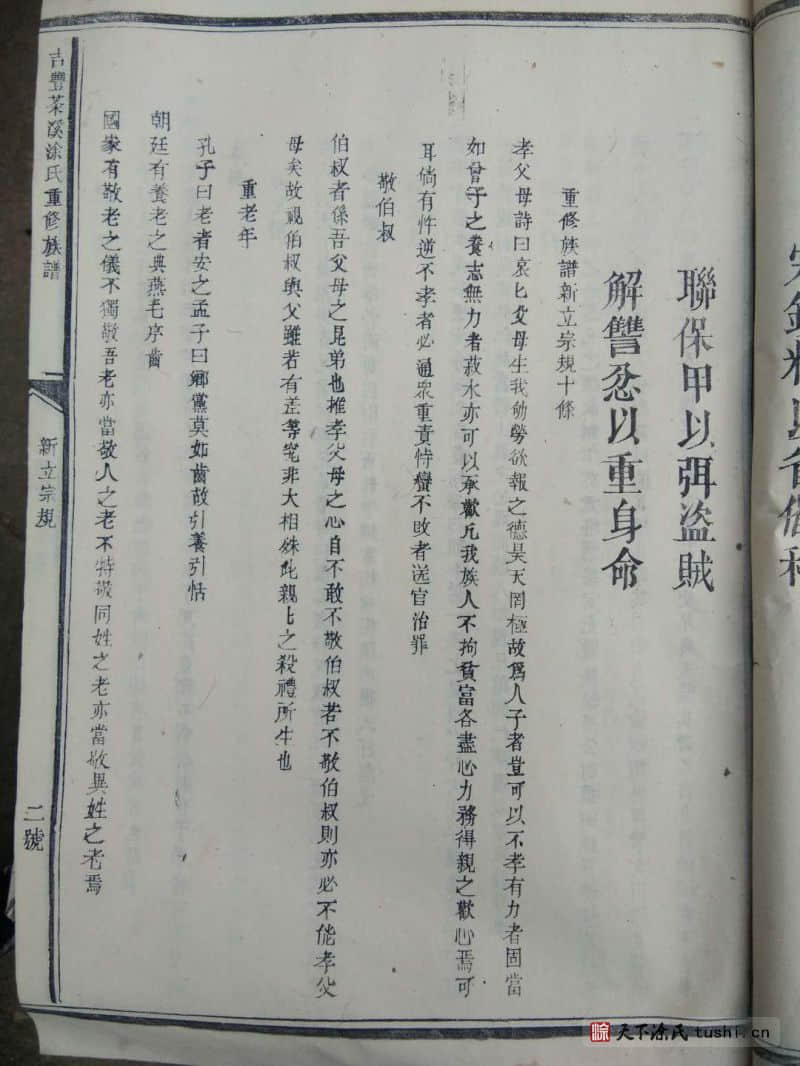 聯保甲以弭盗賊
解讐忿以重身命
重修族譜新立宗規十條
孝父母詩曰哀匕父母生我劬勞欲報之德昊天罔極故爲人子者豈可以不孝有力者固當
如曾子之養志無力者菽水亦可以承歡凡我族人不拘貧富各盡心力務得親之歡心焉可
耳倘有忤逆不孝者必通衆重責恃蠻不敗者送官治罪
敬伯叔
伯叔者係吾父母之昆弟也推孝父母之心自不敢不敬伯叔若不敬伯叔則亦必不能孝父
母矣故視伯叔與父雖若有差等究非大相殊此親匕之殺禮所生也
重老年
孔子曰老者安之孟子曰鄉黨莫如齒故引養引恬
朝廷有養老之典燕毛序齒
國家有敬老之儀不獨敬吾老亦當敬人之老不特敬同姓之老亦當敬異姓之老焉
吉豐茶溪涂氏重修族譜
新立宗規
二號
天下涂氏 tushi.cn